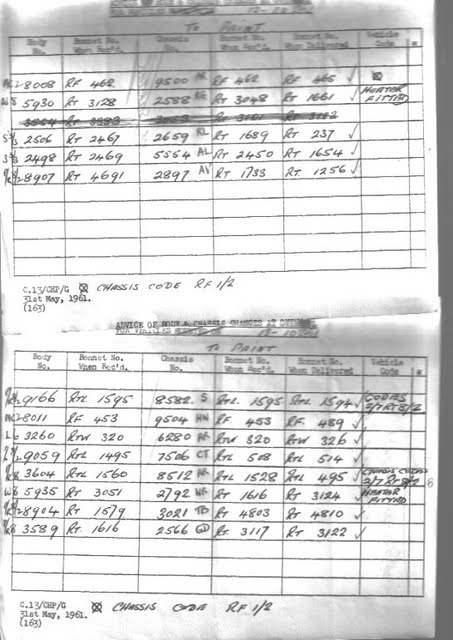 ADVICE OF BODY & CHASSIS CHANGES AT
FOR VEHICLES 17-10
TO PAINT
Body No. Bonnet No. When Rec'd. Chassis No. Bonnet No. When Rec'd. Bonnet No. When Delivered Vehicle Code *
8008 RF 462 9500 RF 462 RF 465 ✓ ☒
5930 RT 3128 2588 RT 3048 RT 1661 ✓ HEATER FITTED
2506 RT 2467 2659 RL RT 1689 RT 237 ✓
2498 RT 2469 5554 AL RT 2450 RT 1654 ✓
8907 RT 4691 2897 AV RT 1733 RT 1256 ✓
C.13/CHP/G ☒ CHASSIS CODE RF 1/2
31st May, 1961.
(163)
ADVICE OF BODY & CHASSIS CHANGES AT
FOR VEHICLES
TO PAINT
Body No. Bonnet No. When Rec'd. Chassis No. Bonnet No. When Rec'd. Bonnet No. When Delivered Vehicle Code *
9166 RTL 1595 8582 S RTL 1595 RTL 1594 ✓ CODES
8011 RF 453 9504 RF 453 RF 489 ✓
L 3260 RTW 320 6280 RTW 320 RTW 326 ✓
9059 RTL 1495 7506 CT RTL 508 RTL 514 ✓
3604 RTL 1560 8512 RTL 1528 RTL 495 ✓ CHASSIS CODES
5935 RT 3051 2792 RT 1616 RT 3124 ✓ HEATER FITTED
8904 RT 1579 3021 RT 4803 RT 4810 ✓
3589 RT 1616 2566 RT 3117 RT 3122 ✓
C.13/CHP/G ☒ CHASSIS CODE RF 1/2
31st May, 1961.
(163)